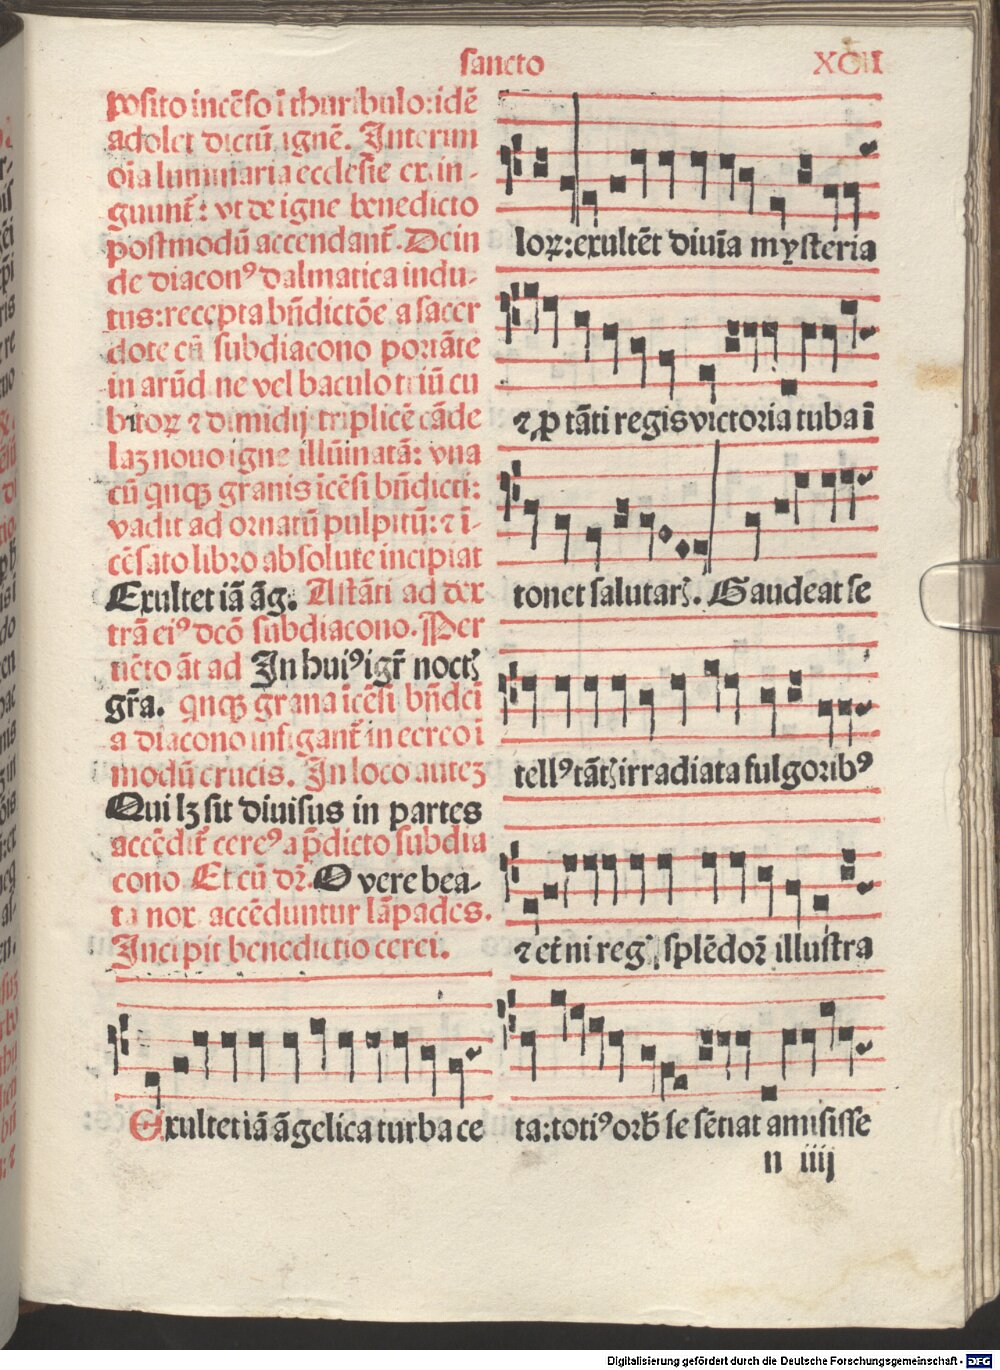 sancto XCII
posito incẽso ĩ thuribulo: idẽ
adolet dictũ ignẽ. Interim
oĩa luminaria ecclesie ex in-
guunt̃: vt de igne benedicto
postmodũ accendant̃. Dein
de diaconꝰ dalmatica indu-
tus: recepta bñdictõe a sacer
dote cũ subdiacono portãte
in arũdine vel baculo triũ cu
bitoꝝ ⁊ dimidij triplicẽ cãde
laꝫ nouo igne illũinatã: vna
cũ qnqꝫ granis ĩcẽsi bñdicti:
vadit ad ornatũ pulpitũ: ⁊ ĩ-
cẽsato libro absolute incipiat
Exultet iã ãg. Astãti ad dex
trã eiꝰ dcõ subdiacono. Per
uẽto ãt ad In huiꝰ igr̃ noctꝭ
gr̃a. qnqꝫ grana ĩcẽsi bñdcĩ
a diacono infigant̃ in cereo ĩ
modũ crucis. In loco auteꝫ
Qui lꝫ sit diuisus in partes
accẽdit̃ cereꝰ a p̃dicto subdia
cono Et cũ dr̃. O vere bea-
ta nox accẽduntur lãpades.
Incipit benedictio cerei.
Exultet iã ãgelica turba ce
loꝝ: exultẽt diuĩa mysteria
⁊ ꝓ tãti regis victoria tuba ĩ
tonet salutarꝭ. Gaudeat se
tellꝰ tãtꝭ irradiata fulgoribꝰ
⁊ etni regꝭ splẽdoꝛ̃ illustra
ta: totiꝰ orb̃ se sẽtiat amisisse
n iiij
Digitalisierung gefördert durch die Deutsche Forschungsgemeinschaft - DFG